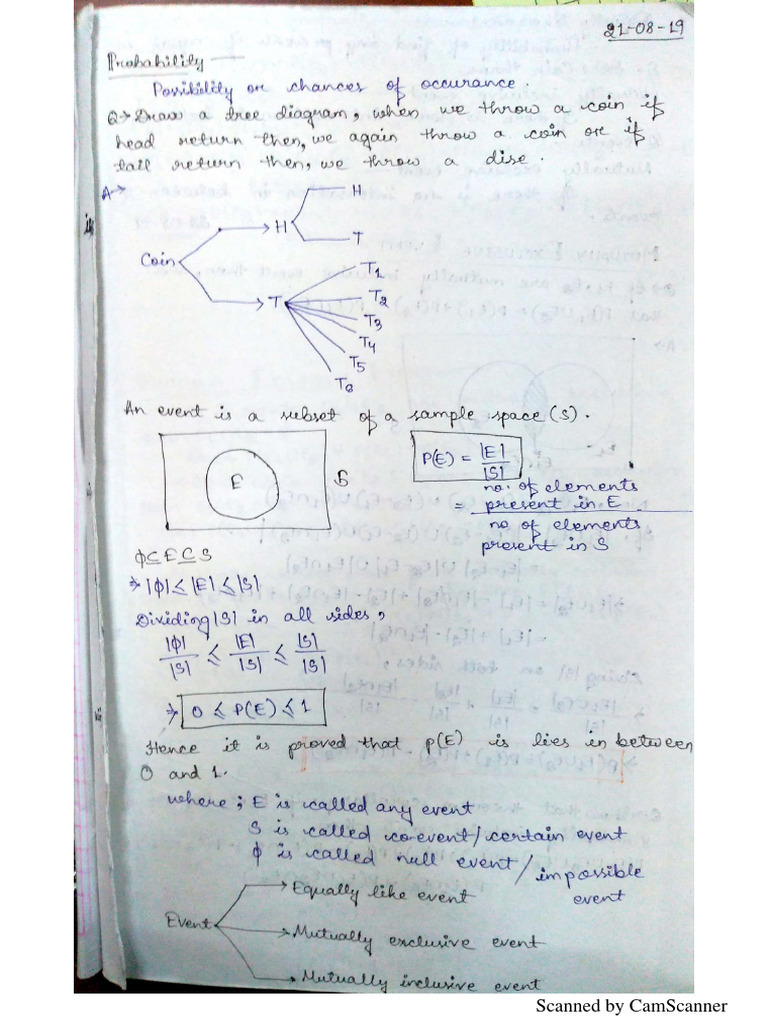 21-08-19
Probability
Possibility or chances of occurance.
Q→ Draw a tree diagram, when we throw a coin if
head return then, we again throw a coin or if
tail return then, we throw a dise.
A→
H
H
T
Coin
T1
T
T2
T3
T4
T5
T6
An event is a subset of a sample space (S).
E
S
P(E) = |E|/|S|
= no. of elements present in E
no of elements
present in S
ϕ⊆E⊆S
⇒ |ϕ| ≤ |E| ≤ |S|
Dividing |S| in all sides,
|ϕ|/|S| ≤ |E|/|S| ≤ |S|/|S|
⇒ 0 ≤ P(E) ≤ 1
Hence it is proved that p(E) is lies in between
0 and 1.
where ; E is called any event
S is called co-event/certain event
ϕ is called null event/impossible
event
Equally like event
Event
Mutually exclusive event
Mutually inclusive event
Scanned by CamScanner